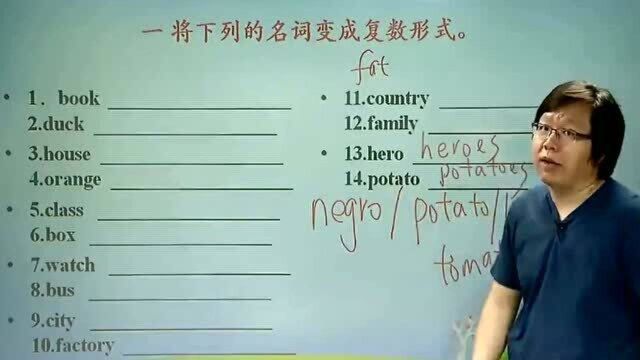 一 将下列的名词变成复数形式。
fat
• 1．book
2.duck
• 3.house
4.orange
• 5.class
6.box
• 7.watch
8.bus
• 9.city
10.factory
• 11.country
12.family
• 13.hero heroes
14.potato potatoes
negro/potato/